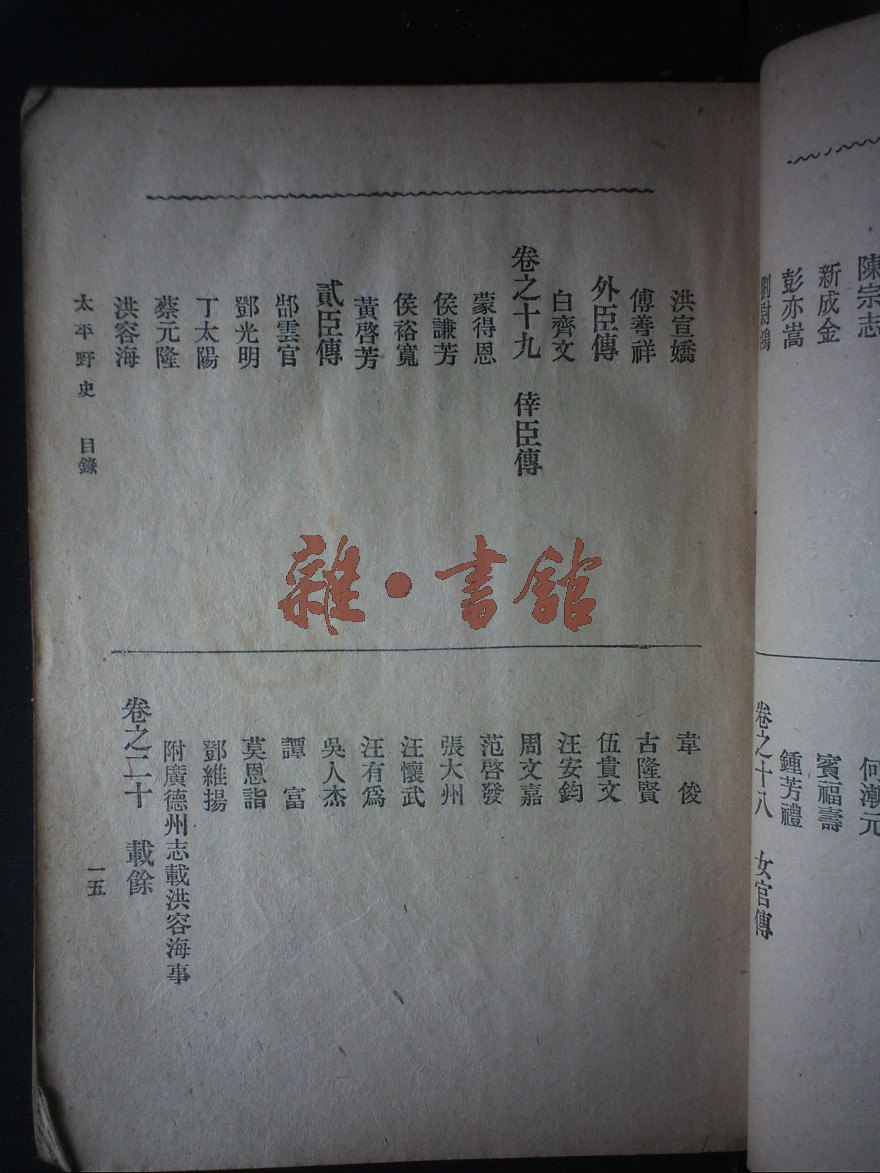 陳宗志
新成金
彭亦嵩
何潮元
賓福壽
鍾芳禮
卷之十八 女官傳
洪宣嬌
傅善祥
外臣傳
白齊文
卷之十九 倖臣傳
蒙得恩
侯謙芳
侯裕寬
黃啓芳
貳臣傳
郜雲官
鄧光明
丁太陽
蔡元隆
洪容海
韋俊
古隆賢
伍貴文
汪安鈞
周文嘉
范啓發
張大州
汪懷武
汪有爲
吳人杰
譚富
莫恩詣
鄧維揚
附廣德州志載洪容海事
卷之二十 載餘
太平野史 目錄
一五
雜·書館